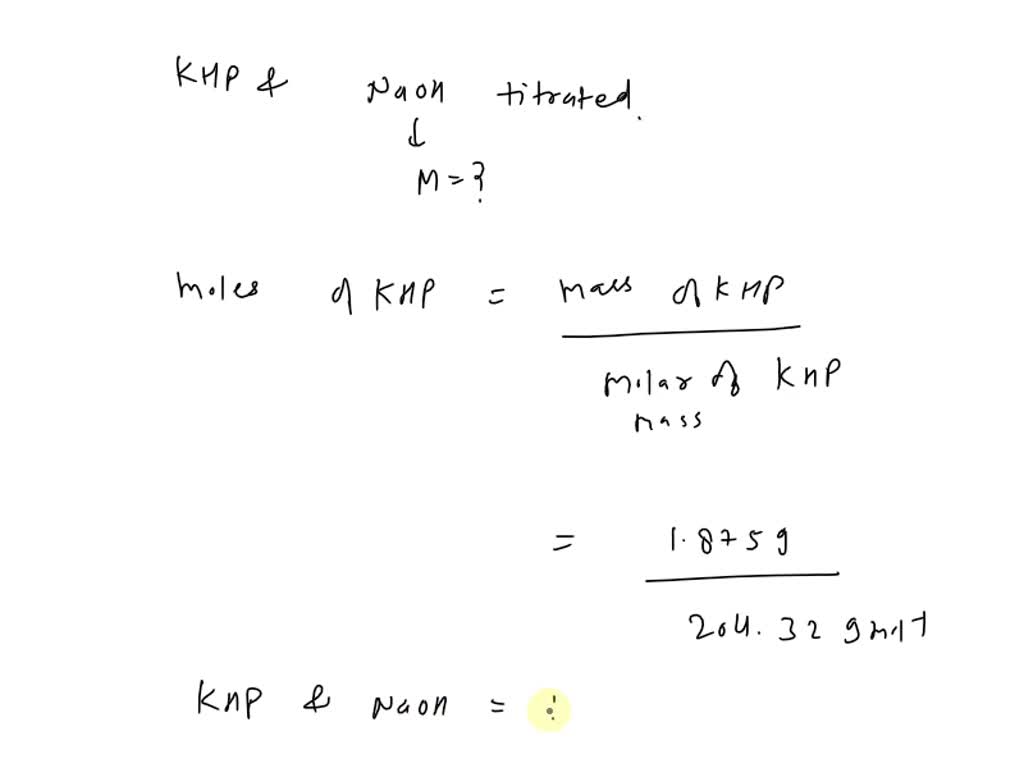 KHP & NaOH titrated.
↓
M = ?
moles of KHP = mass of KHP
molar of KHP
mass
= 1.875 g
204.32 gmol-1
KHP & NaOH = :